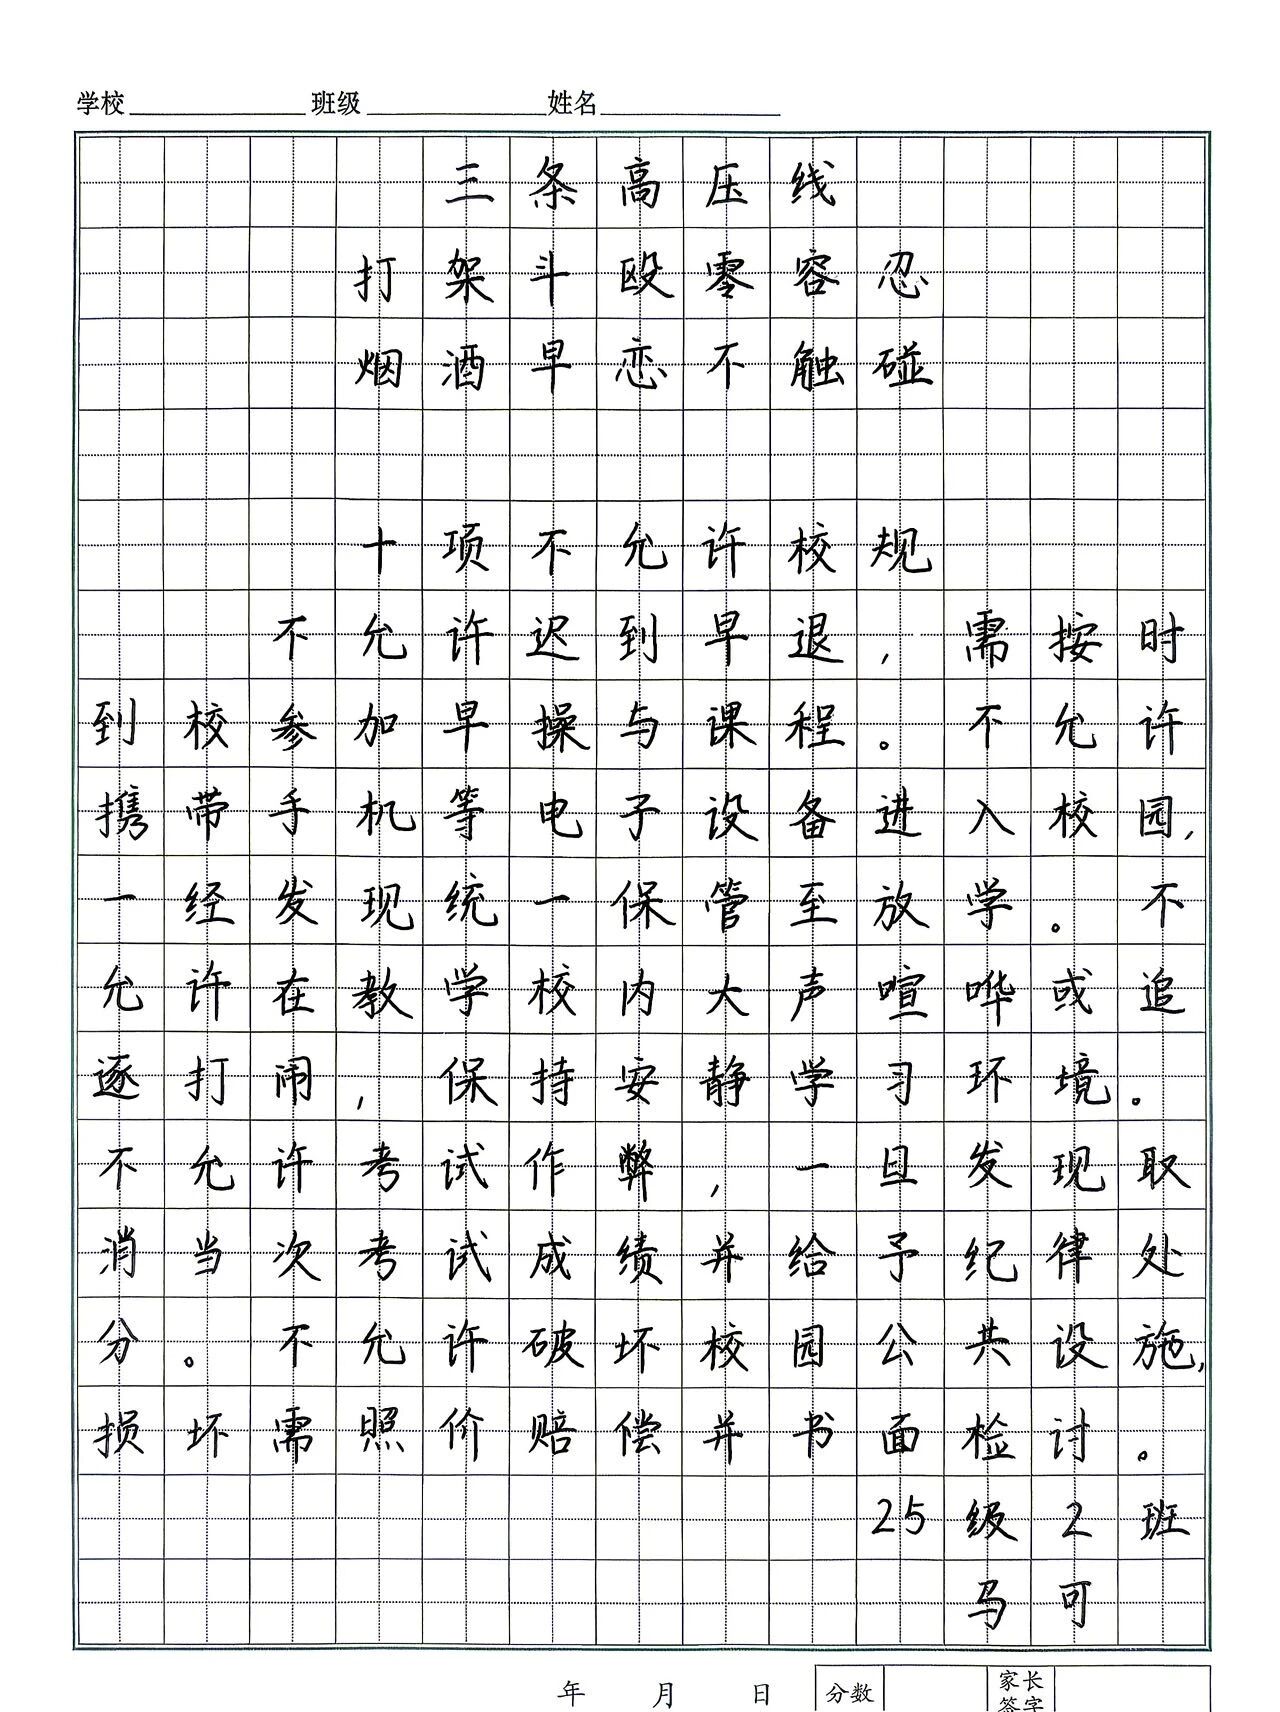 学校 班级 姓名
三条高压线
打架斗殴零容忍
烟酒早恋不触碰
十项不允许校规
不允许迟到早退，需按时
到校参加早操与课程。不允许
携带手机等电子设备进入校园，
一经发现统一保管至放学。不
允许在教学校内大声喧哗或追
逐打闹，保持安静学习环境。
不允许考试作弊，一旦发现取
消当次考试成绩并给予纪律处
分。不允许破坏校园公共设施，
损坏需照价赔偿并书面检讨。
25级2班
马可
年 月 日 分数 家长
签字